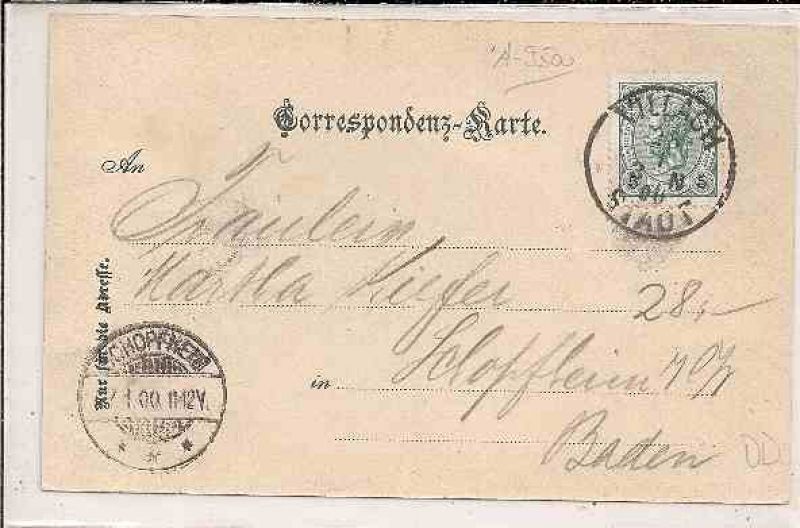 Correspondenz-Karte.
VILLACH
STADT
5 5
An
Fräulein
Martha Kiefer
28,-
in Schopfheim
Baden
Nur für die Adresse.
SCHOPFHEIM
1.00. 11-12V.